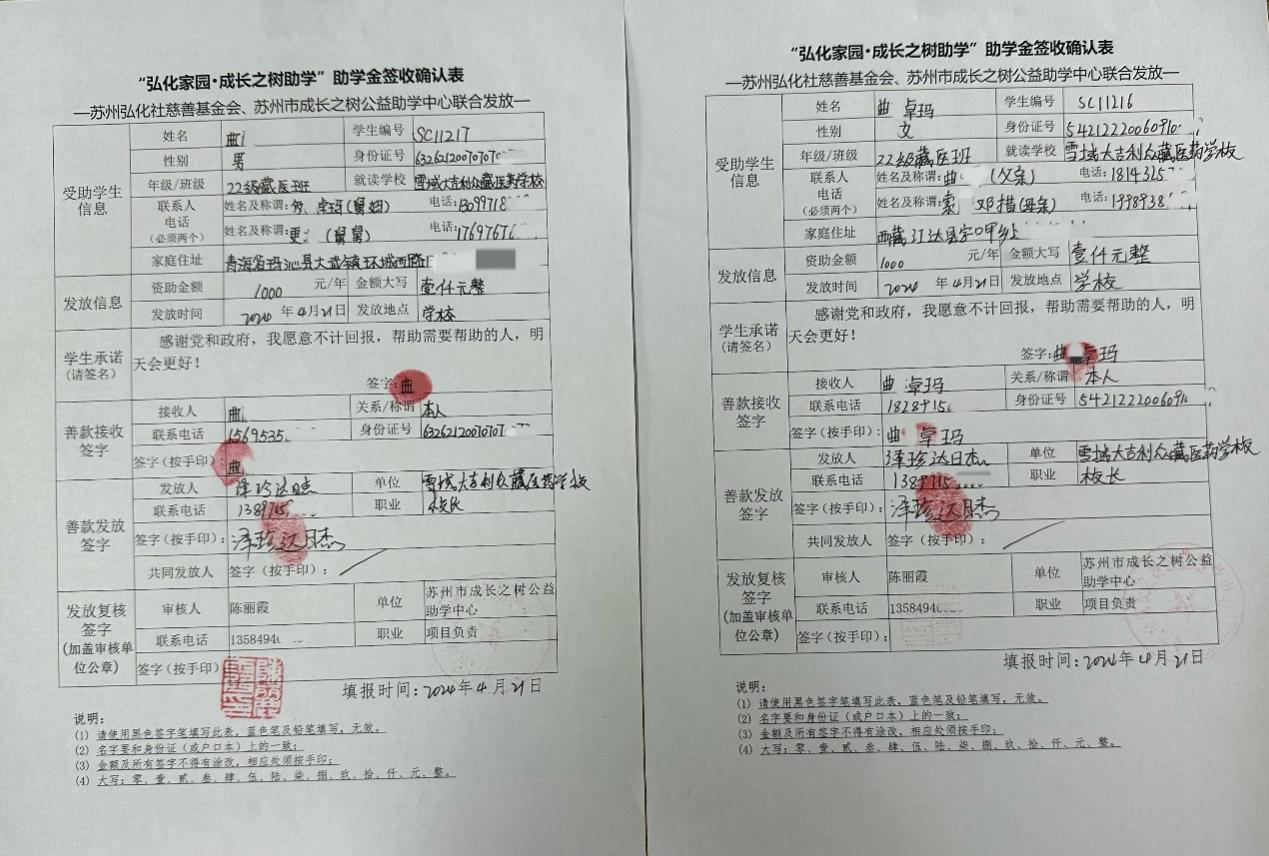 “弘化家园·成长之树助学”助学金签收确认表
—苏州弘化社慈善基金会、苏州市成长之树公益助学中心联合发放—
受助学生信息
姓名 曲 学生编号 SC11217
性别 男 身份证号 63262120070707
年级/班级 22级藏医班 就读学校 雪域大吉利众藏医药学校
联系人电话(必须两个) 姓名及称谓: (舅妈) 电话:13099718
姓名及称谓:更 (舅舅) 电话:1769767
家庭住址 青海省玛沁县大武镇环城西路
发放信息
资助金额 1000 元/年 金额大写 壹仟元整
发放时间 2024 年 4月21日 发放地点 学校
学生承诺(请签名)
感谢党和政府，我愿意不计回报，帮助需要帮助的人，明
天会更好！
签字:曲
善款接收签字
接收人 曲 关系/称谓 本人
联系电话 1569535 身份证号 63262120070707
签字(按手印):曲
善款发放签字
发放人 泽珍达日杰 单位 雪域大吉利众藏医药学校
联系电话 1389715 职业 校长
签字(按手印): 泽珍达日杰
共同发放人 签字(按手印):
发放复核签字(加盖审核单位公章)
审核人 陈丽霞 单位 苏州市成长之树公益助学中心
联系电话 1358494 职业 项目负责
签字(按手印)
填报时间:2024年4月21日
说明:
(1) 请使用黑色签字笔填写此表，蓝色笔及铅笔填写，无效。
(2) 名字要和身份证（或户口本）上的一致；
(3) 金额及所有签字不得有涂改，相应处须按手印；
(4) 大写：零、壹、贰、叁、肆、伍、陆、柒、捌、玖、拾、仟、元、整。
“弘化家园·成长之树助学”助学金签收确认表
—苏州弘化社慈善基金会、苏州市成长之树公益助学中心联合发放—
受助学生信息
姓名 曲 卓玛 学生编号 SC11216
性别 女 身份证号 54212220060910
年级/班级 22级藏医班 就读学校 雪域大吉利众藏医药学校
联系人电话(必须两个) 姓名及称谓:曲 (父亲) 电话:1814325
姓名及称谓: 邓措(母亲) 电话:1998938
家庭住址 西藏江达县字呷乡
发放信息
资助金额 1000 元/年 金额大写 壹仟元整
发放时间 2024 年 4月21日 发放地点 学校
学生承诺(请签名)
感谢党和政府，我愿意不计回报，帮助需要帮助的人，明
天会更好！
签字:曲 卓玛
善款接收签字
接收人 曲 卓玛 关系/称谓 本人
联系电话 1828915 身份证号 5421222006091
签字(按手印):曲 卓玛
善款发放签字
发放人 泽珍达日杰 单位 雪域大吉利众藏医药学校
联系电话 1389715 职业 校长
签字(按手印): 泽珍达日杰
共同发放人 签字(按手印):
发放复核签字(加盖审核单位公章)
审核人 陈丽霞 单位 苏州市成长之树公益助学中心
联系电话 1358494 职业 项目负责
签字(按手印):
填报时间:2024年4月21日
说明:
(1) 请使用黑色签字笔填写此表，蓝色笔及铅笔填写，无效。
(2) 名字要和身份证（或户口本）上的一致；
(3) 金额及所有签字不得有涂改，相应处须按手印；
(4) 大写：零、壹、贰、叁、肆、伍、陆、柒、捌、玖、拾、仟、元、整。